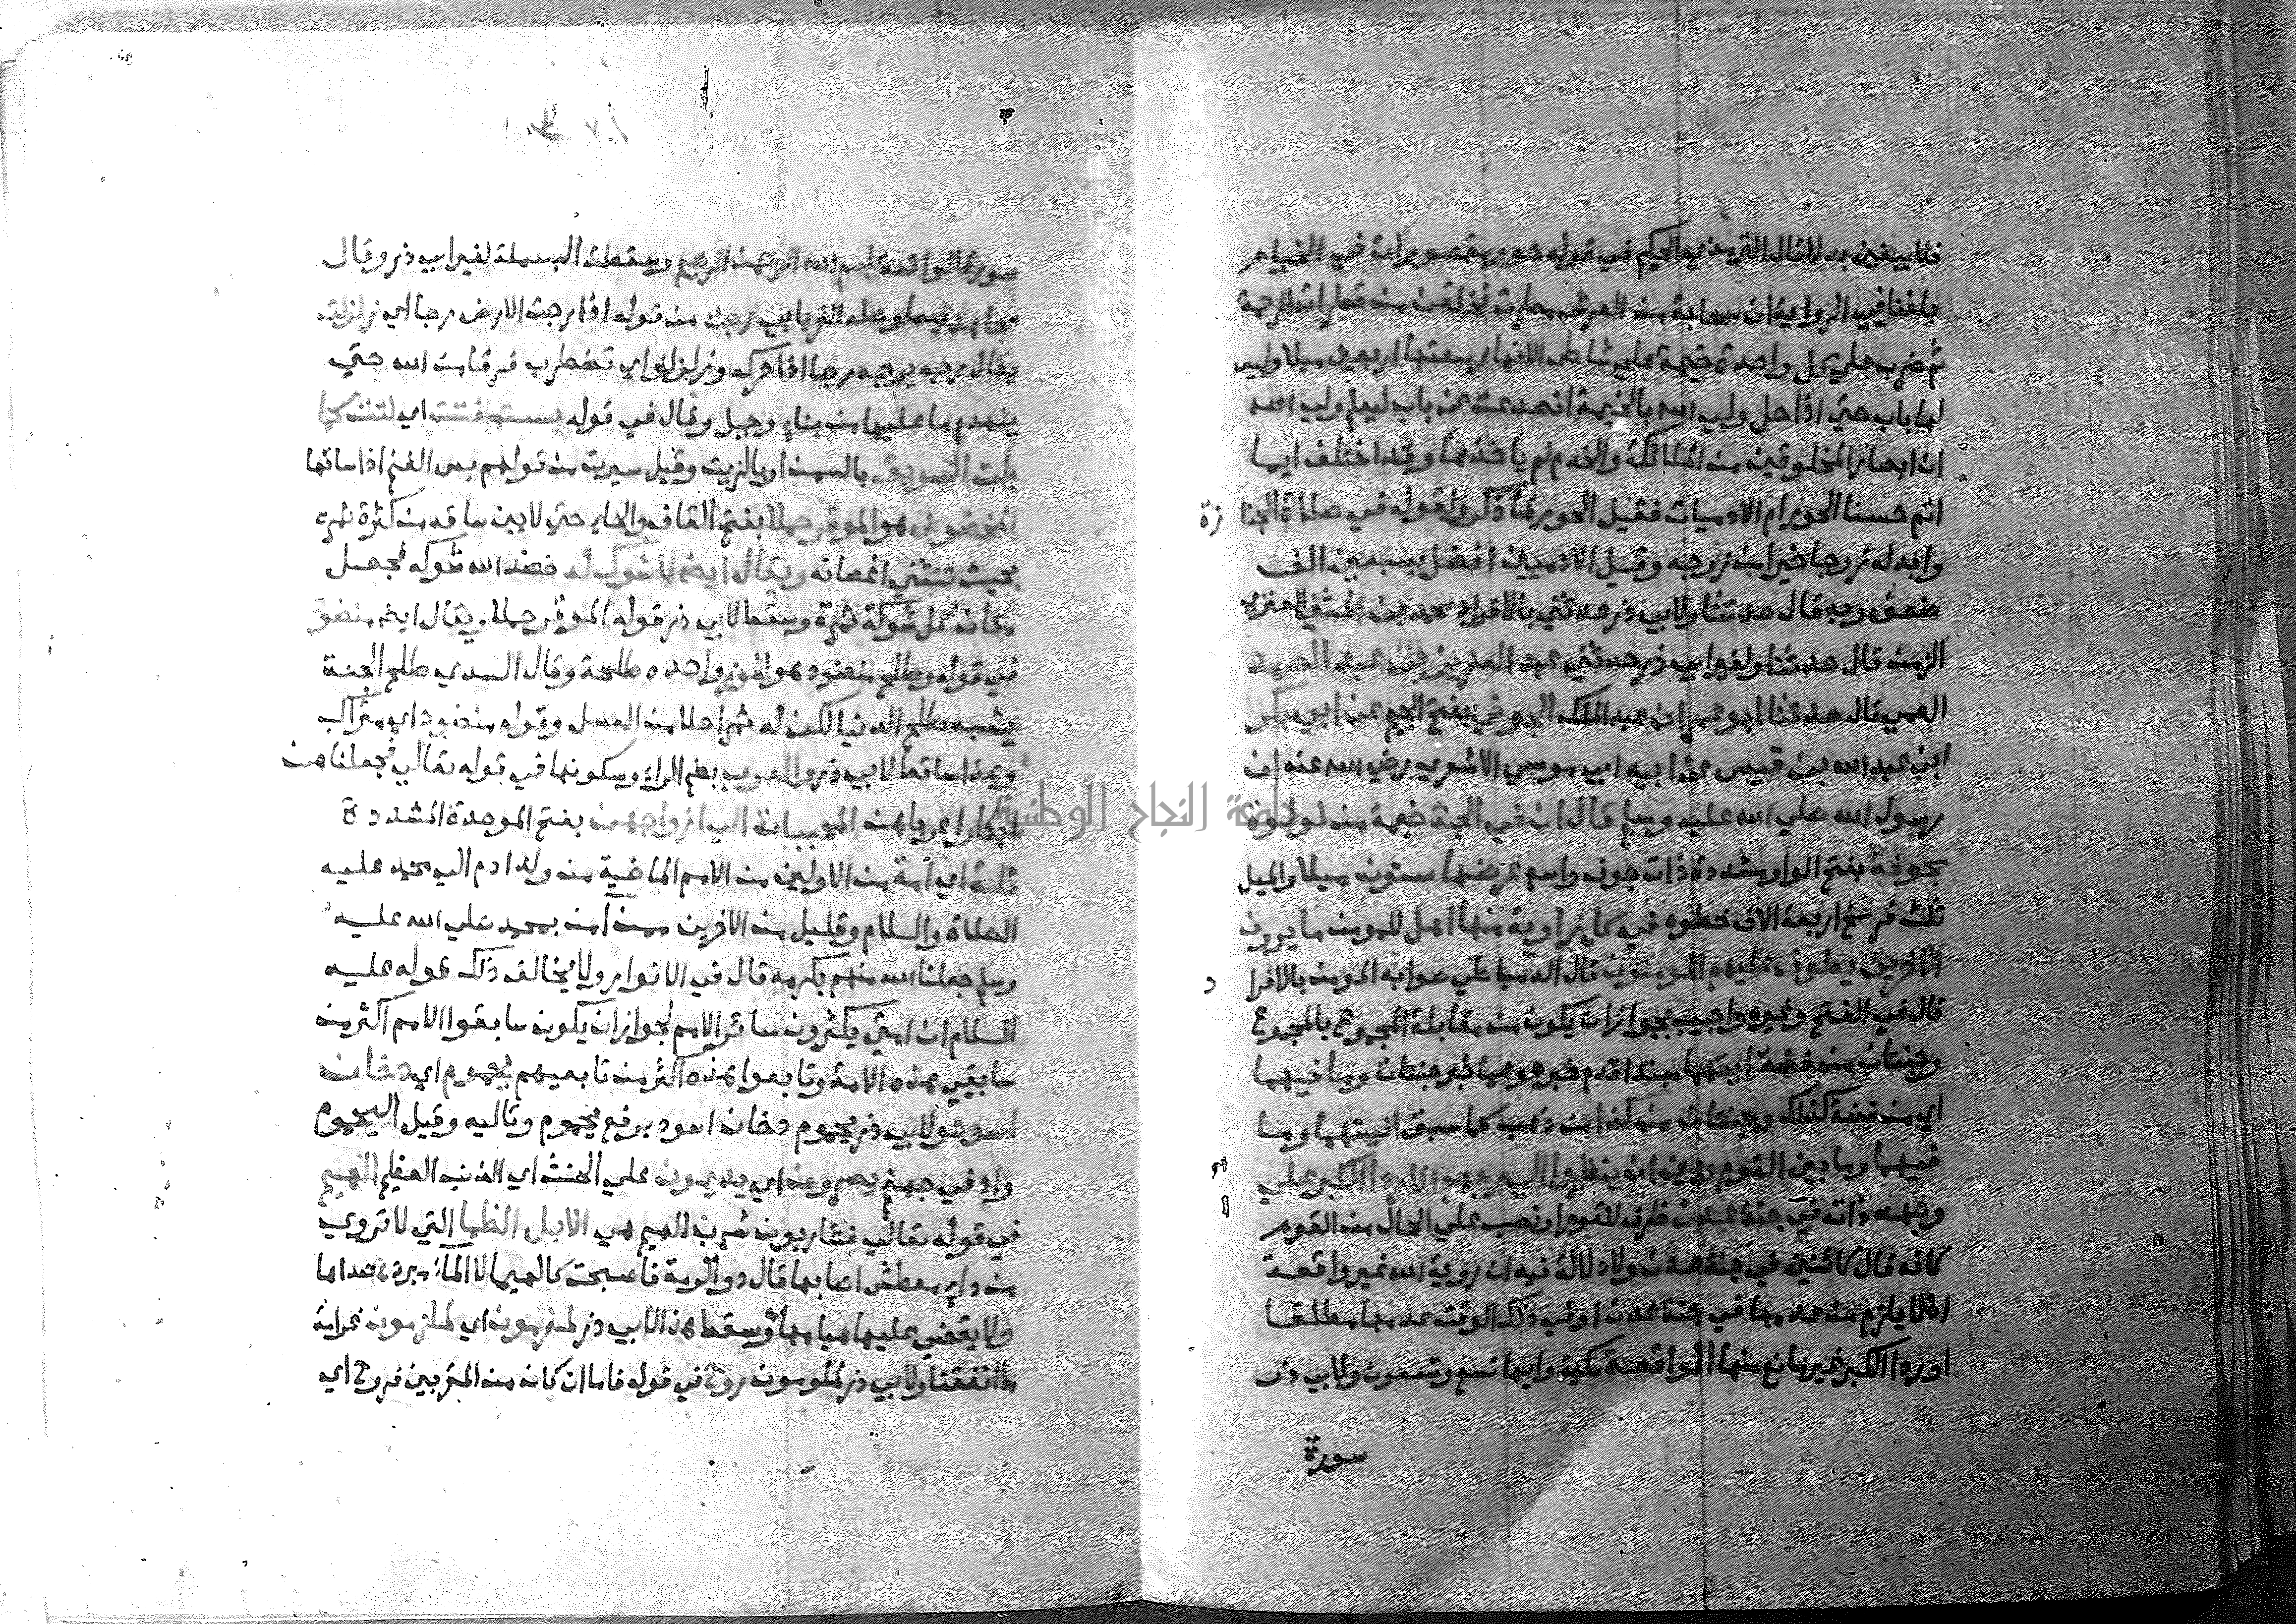 فلا يبغين بدلا قال الترمذي الحكيم في قوله حور مقصورات في الخيام
بلغنا في الرواية ان سحابة من العرش مطرت فخلقن من قطرات الرحمة
ثم ضرب على كل واحدة خيمة علي شاطى الانهار سعتها اربعين ميلا وليس
لها باب حتي اذا حل ولي الله بالخيمة انصدعت عن باب ليعلم ولي الله
ان ابصار المخلوقين من الملائكة والخدم لم ياخذها وقد اختلف ايما
اتم حسنا الحور ام الادميات فقيل الحور لما ذكر ولقوله في صلاة الجنا زة
وابدله زوجا خيرا من زوجه وقيل الادميين افضل بسبعين الف
ضعف وبه قال حدثنا ولابي ذر حدثني بالافراد محمد بن المثني العنزي
الزمن قال حدثنا ولغير ابي ذر حدثني عبد العزيز بن عبد الصمد
العمي قال حدثنا ابو عمران عبد الملك الجوني بفتح الجيم عن ابي بكر
ابن عبد الله بن قيس عن ابيه ابي موسي الاشعري رضي الله عنه ان
رسول الله صلي الله عليه وسلم قال ان في الجنة خيمة من لولوة
مجوفة بفتح الواو مشددة ذات جوف واسع عرضها ستون ميلا والميل
ثلث فرسخ اربعة الاف خطوه في كل زاوية منها اهل للمومن ما يرون
الاخرين يطوف عليهم المومنون قال الدمياطي صوابه المومن بالافرا د
قال في الفتح وغيره واجيب بجواز ان يكون من مقابلة المجموع بالمجموع
وجنتان من فضة انيتهما مبتدا قدم خبره وهما خبر جنتان وما فيهما
اي من فضة كذلك وجنتان من كذا من ذهب كما سبق انيتهما وما
فيهما وما بين القوم وبين ان ينظروا الي ربهم الا رداء الكبر علي
وجهه ذاته في جنة عدن ظرف للقوم او نصب علي الحال من القوم
كانه قال كائنين في جنة عدن ولا دلالة فيه ان روية الله غير واقعة
اذ لا يلزم من عدمها في جنة عدن او في ذلك الوقت عدمها مطلقا
او رداء الكبر غير مانع منها الواقعة مكية وايها تسع وتسعون ولابي ذر
سورة
سورة الواقعة بسم الله الرحمن الرحيم وسقطت البسملة لغير ابي ذر وقال
مجاهد فيما وصله الفريابي رجت من قوله اذا رجت الارض رجا اي زلزلت
يقال رجه يرجه رجا اذا حركه وزلزله اي تضطرب فرقا من الله حتي
ينهدم ما عليها من بناء وجبل وقال في قوله بست فتت اي لتت كما
يلت السويق بالسمن او بالزيت وقيل سيرت من قولهم بس الغنم اذا ساقها
المخضود هو الموقر حملا بفتح القاف والحاء حتي لا يبين ساقه من كثرة ثمره
بحيث تنثني اغصانه ويقال ايضا لا شوك له خضد الله شوكه فجعل
مكان كل شوكة ثمرة وسقط لابي ذر قوله الموقر حملا ويقال ايضا منضود
في قوله وطلح منضود هو الموز واحده طلحة وقال السدي طلح الجنة
يشبه طلح الدنيا لكن له ثمر احلا من العسل وقوله منضود اي متراكب
وهذا ساقط لابي ذر والعرب بضم الراء وسكونها في قوله تعالي فجعلناهن
ابكارا عربا هن المحببات الي ازواجهن بفتح الموحدة المشددة
ثلة اي امة من الاولين من الامم الماضية من ولد ادم الي محمد عليه
الصلاة والسلام وقليل من الاخرين ممن آمن بمحمد صلي الله عليه
وسلم جعلنا الله منهم بكرمه قال في الانوار ولا يخالف ذلك قوله عليه
السلام ان امتي يكثرون سائر الامم لجواز ان يكون سابقوا الامم اكثر من
سابقي هذه الامة وتابعوا هذه اكثر من تابعيهم يحموم اي دخان
اسود ولابي ذر يحموم دخان اسود برفع يحموم وتاليه وقيل اليحموم
واد في جهنم يصرون اي يديمون علي الحنث اي الذنب العظيم الهيم
في قوله تعالي فشاربون شرب الهيم هي الابل الظما التي لا تروي
من داء معطش اصابها قال ذو الرمة فاصبحت كالهيما لا الماء مبرد صداها
ولا يقضي عليها هيامها وسقط هذا لابي ذر لمغرمون اي لملزمون غرامة
ما انفقنا ولابي ذر لملومون روح في قوله فاما ان كان من المقربين فروح اي
جامعة النجاح الوطنية